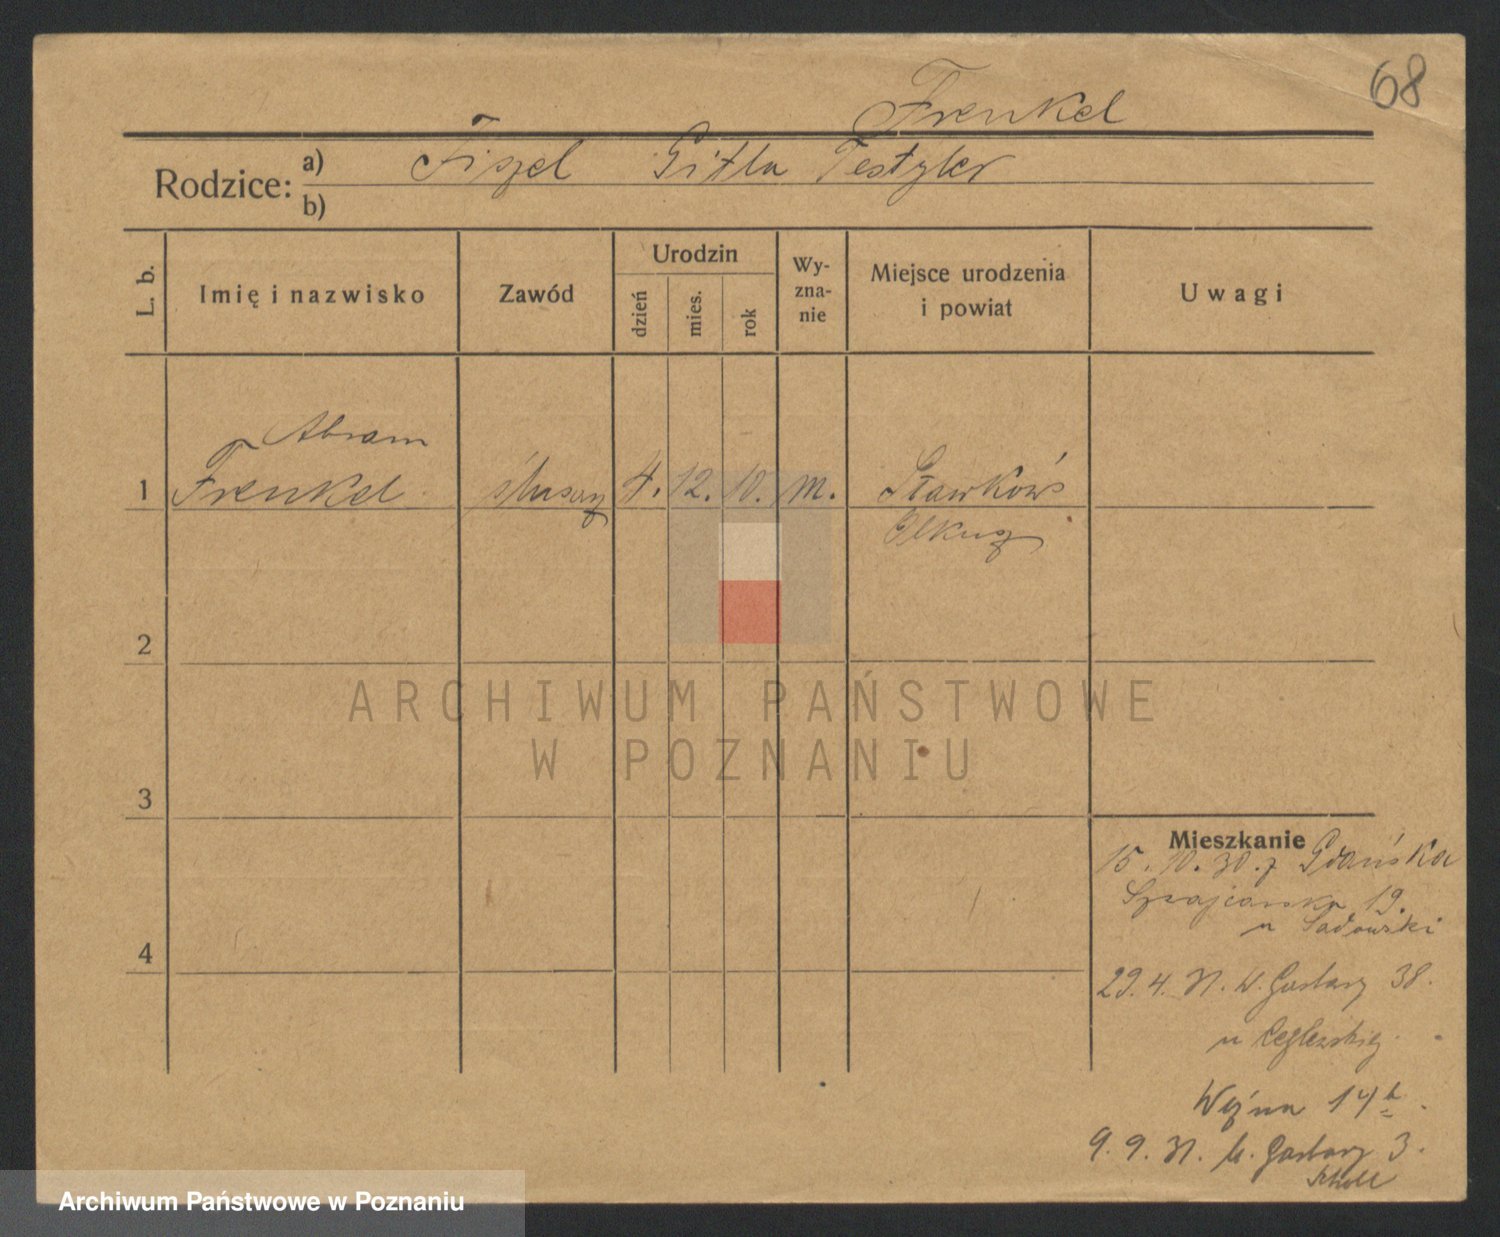 68
Frenkel
Rodzice: a) Fiszel Gitla Testyler
b)
L. b.
Imię i nazwisko
Zawód
Urodzin
dzień
mies.
rok
Wy-
zna-
nie
Miejsce urodzenia
i powiat
Uwagi
Abram
1 Frenkel ślusarz 4. 12. 10. m. Sławków
Olkusz
2
3
4
Mieszkanie
15.10.30. z Gdańska
Szwajcarska 19.
u Sadowski
29.4.31. W. Garbary 38.
u
Woźna 14
9.9.31. Garbary 3.
ARCHIWUM PAŃSTWOWE
W POZNANIU
Archiwum Państwowe w Poznaniu